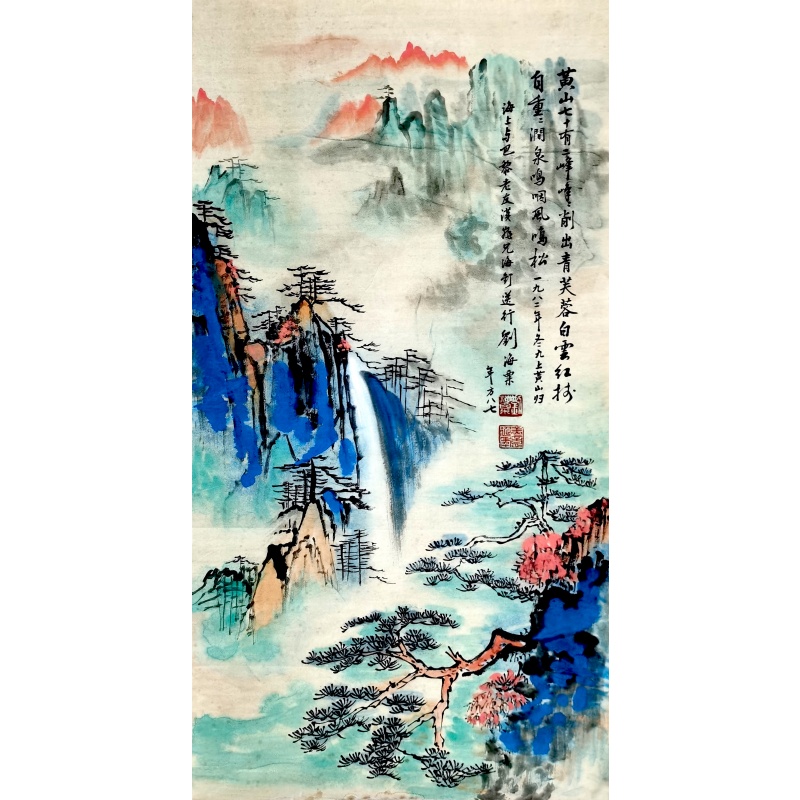 黄山七十有二峰峰削出青芙蓉白雲红树
自重〻澗泉鳴咽風鳴松一九八二年冬九上黄山归
海上与巴黎老友漢
兄海
送行劉海粟
年方八七